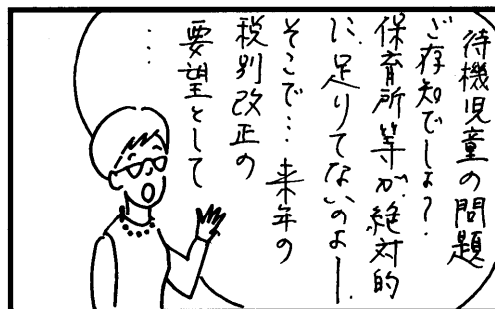 待機児童の問題
ご存知でしょ？
保育所等が絶対的
に、足りてないのよー。
そこで…来年の
税別改正の
要望として
…